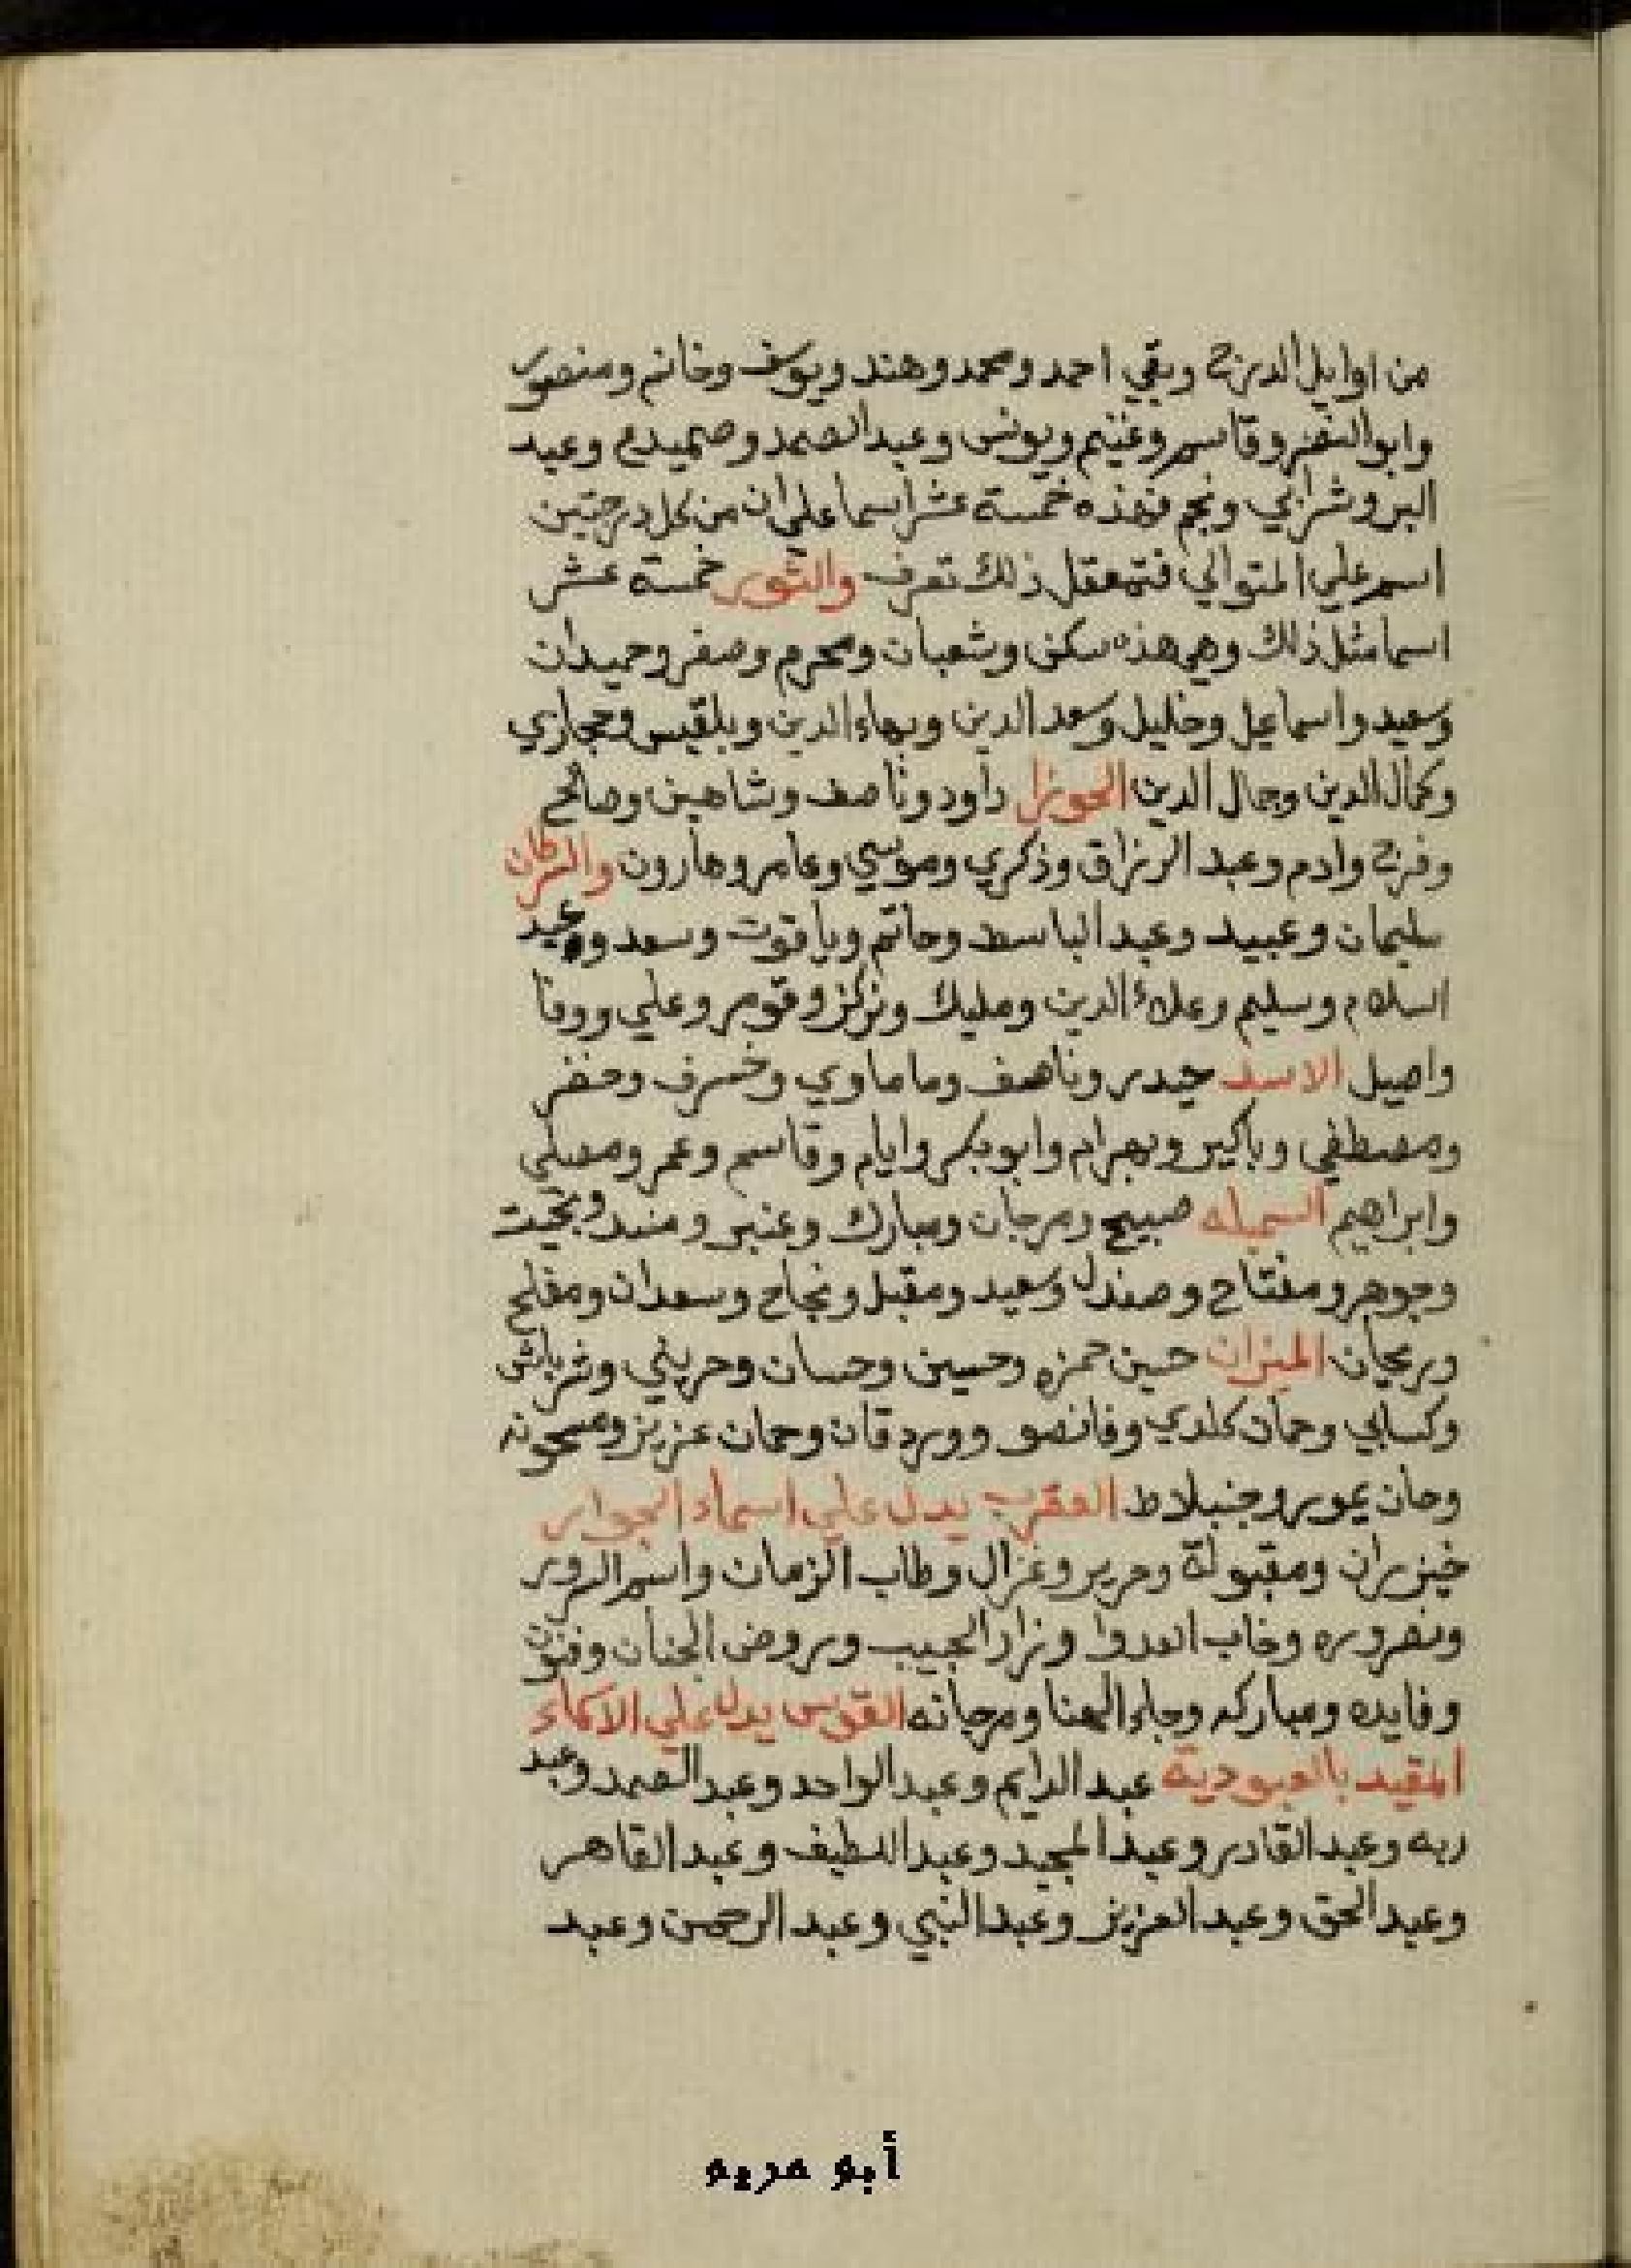 من اوايل الدرج وبقي احمد ومحمد وهند ويوسف وخانم ومنصور
وابو النصر وقاسم وغنيم ويونس وعبد الصمد وصميدع وعبد
البر وشرابي ونجم فهذه خمسة عشر اسما علي ان من كل درجتين
اسم علي المتوالي ذلك تعرف والثور خمسة عشر
اسما مثل ذلك وهي هذه وشعبان ومحرم وصفر وحميدان
وسعيد واسماعيل وخليل وسعد الدين وبهاء الدين وبلقيس وحجازي
وكمال الدين وجمال الدين الجوزا داود وناصف وشاهين وصالح
وفرج وادم وعبد الرزاق وذكري وموسي وعامر وهارون والسرطان
سليمان وعبيد وعبد الباسط وحاتم وياقوت وسعد وعبد
السلام وسليم وعلاء الدين ومليك وعلي ووفا
واصيل الاسد حيدر وناصف وماماوي وخسرف وخضر
ومصطفي وباكير وبهرام وابو بكر وايام وقاسم وعمر
وابراهيم السمبله صبيح ومرجان ومبارك وعنبر وبخيت
وجوهر ومفتاح وصندل وسعيد ومقبل ونجاح وسعدان ومفلح
وريحان الميزان حسن حمزه وحسين وحسان
وكسابي وجان كلدي وقانصو ووردقان وجان عزيز
وجان وجنبلاط العقرب يدل علي اسماء الجوار
خيزران ومقبولة وحرير وغزال وطاب الزمان واسم الدور
وخاب العدوا وزار الحبيب وروض الجنان
وفايده ومباركه وجلا الهنا ومرجانه القوس يدل علي الاسماء
المقيد بالعبودية عبد الدايم وعبد الواحد وعبد الصمد وعبد
ربه وعبد القادر وعبد المجيد وعبد اللطيف وعبد القاهر
وعبد الحق وعبد العزيز وعبد النبي وعبد الرحمن وعبد
أبو مريم